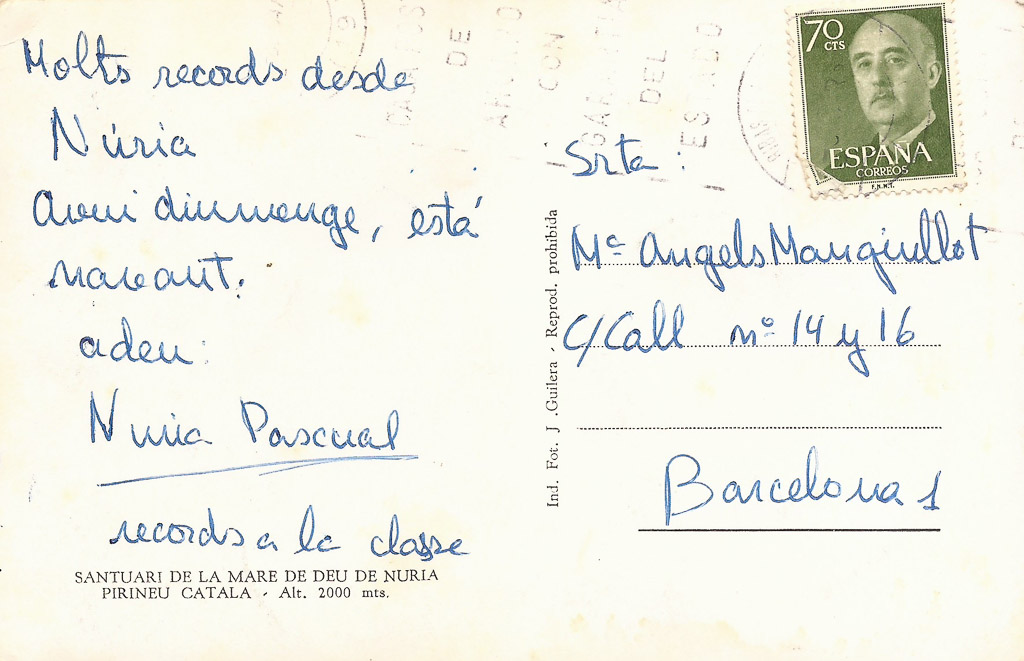 Molts records desde
Núria
Avui diumenge, está
nevant.
adeu:
Nuria Pascual
records a la classe
SANTUARI DE LA MARE DE DEU DE NURIA
PIRINEU CATALA - Alt. 2000 mts.
Ind. Fot. J. Guilera - Reprod. prohibida
DE
CON
DEL
70
CTS
ESPAÑA
CORREOS
F.N.M.T.
Srta:
Mª Angels
C/ Call nº 14 y 16
Barcelona 1